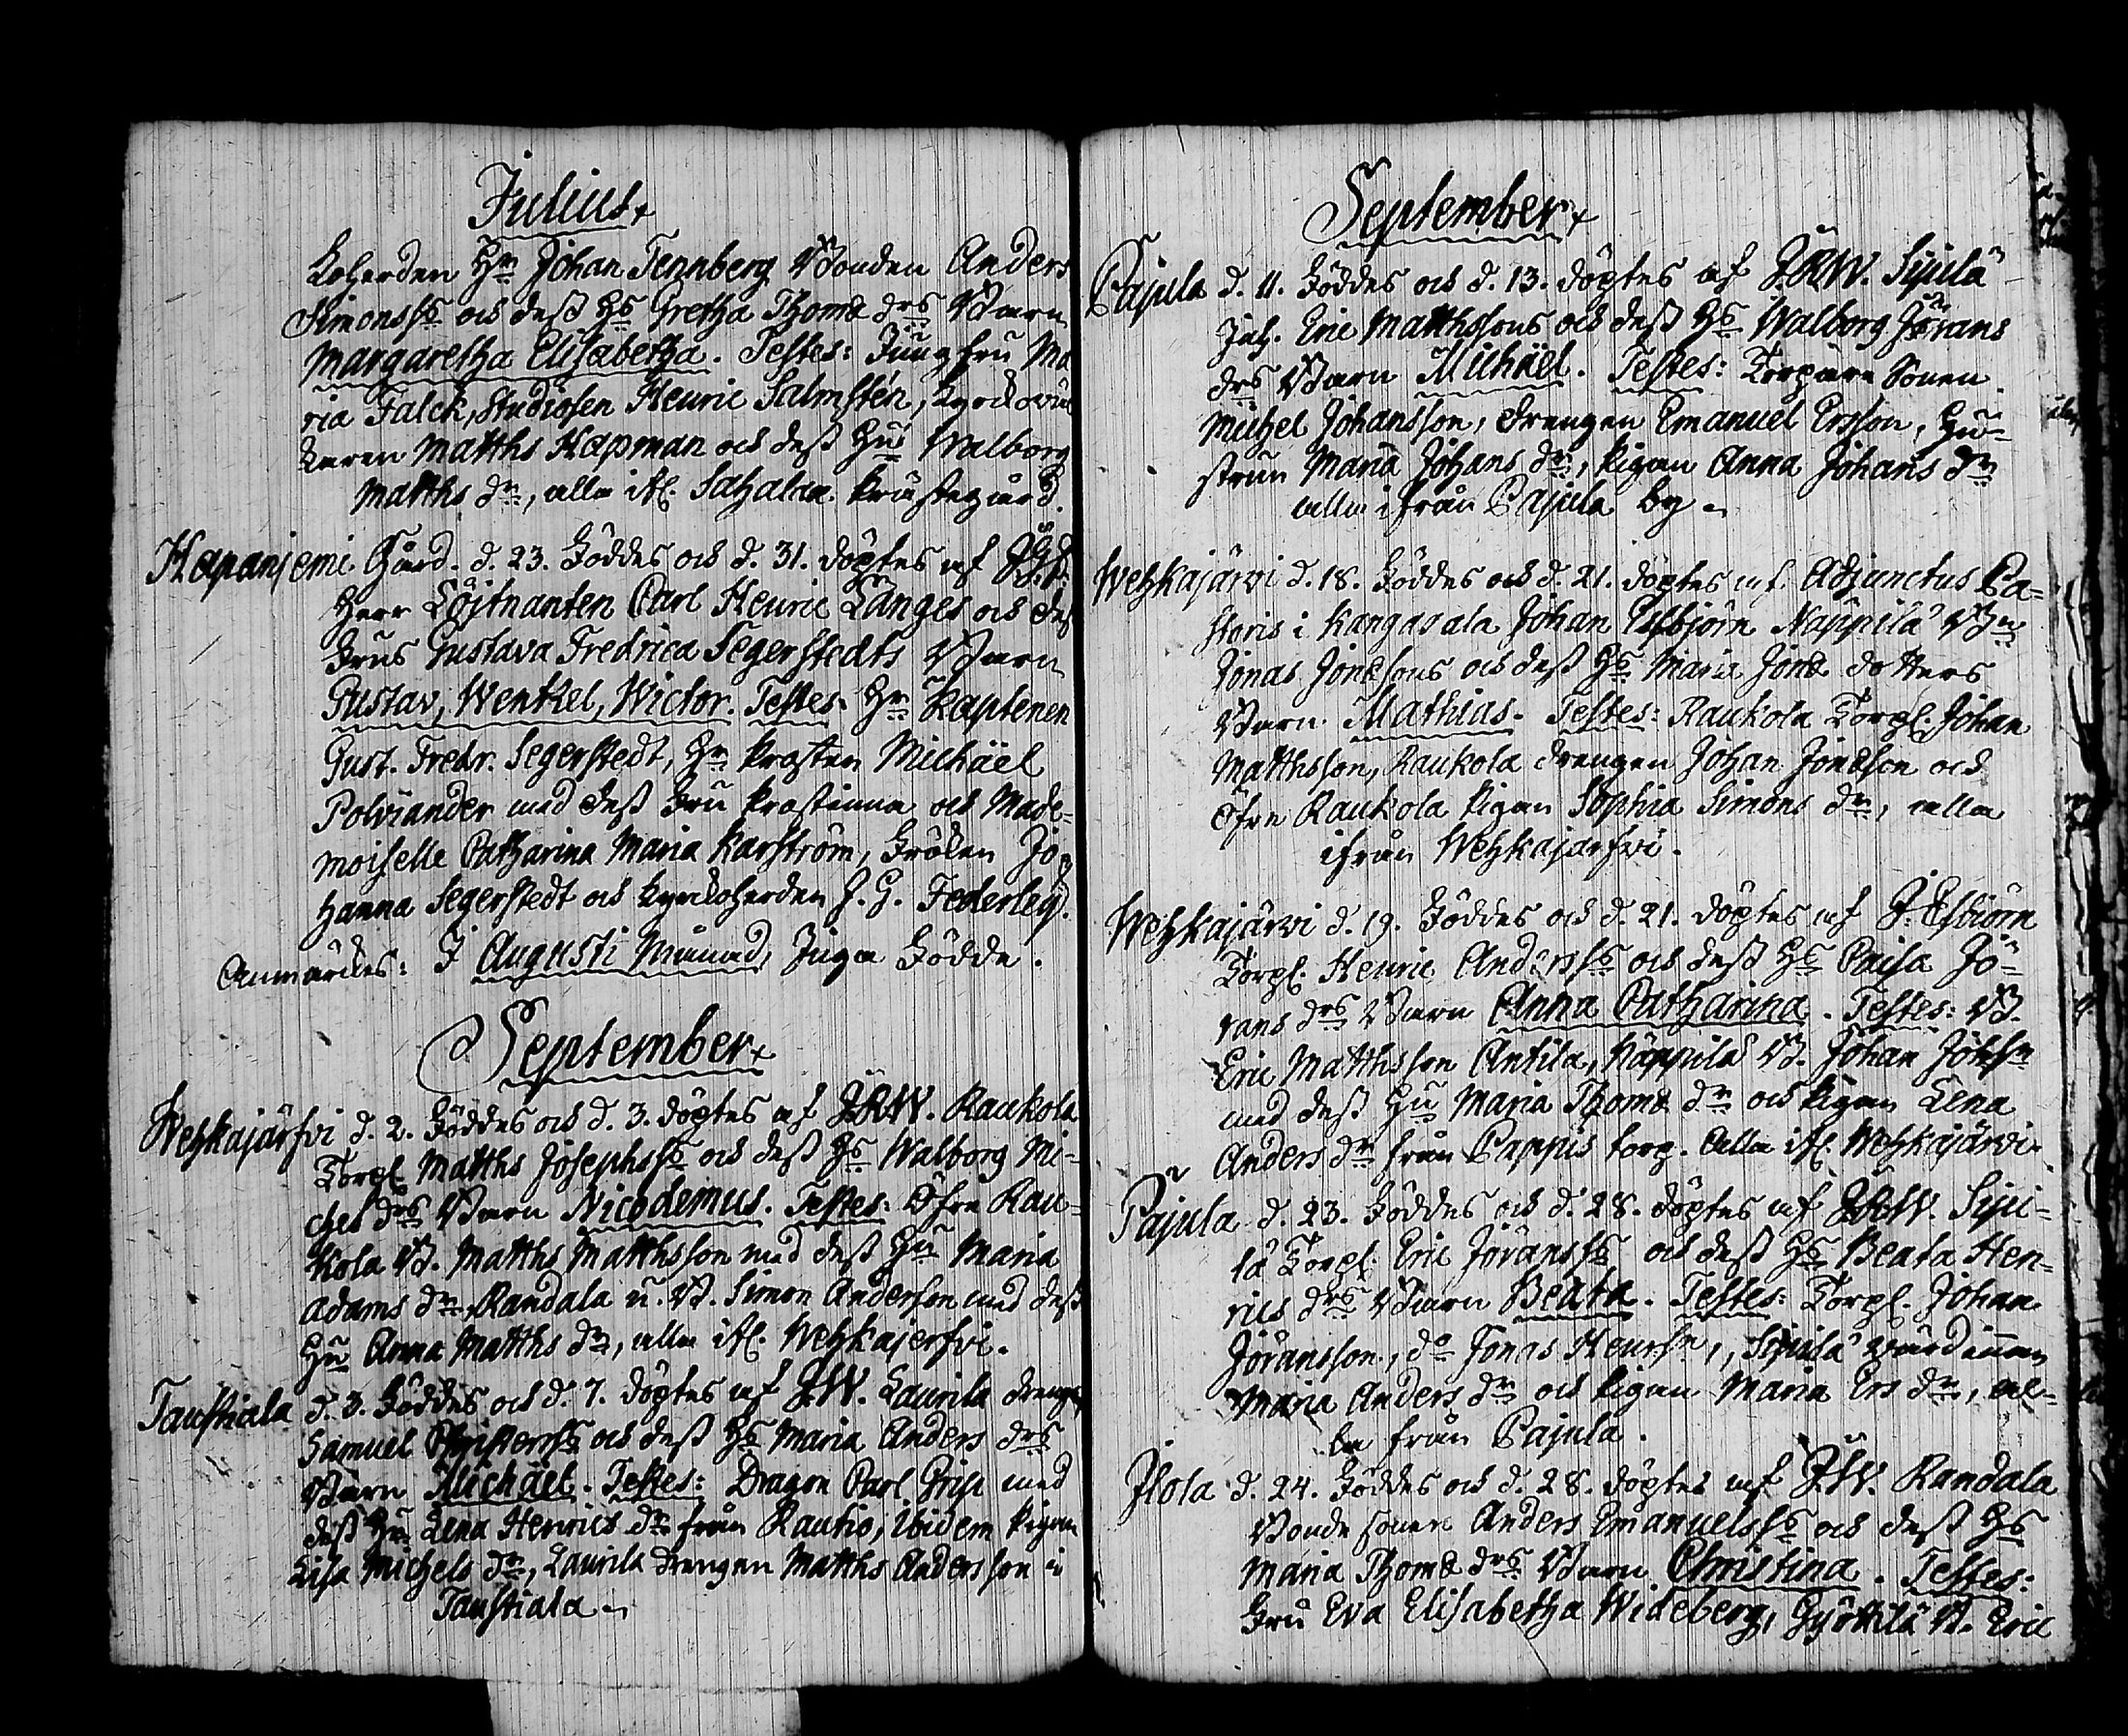 Julius
koherden Hr Johan Tennberg Bonden Anders
Simonss och dess Hs Gretha Thomæ drs Barn
Margaretha Elisabetha. Testes: Jungfru Ma
ria Falck, Studiosen Henric Salmstén, Kyrckoväc
karen Matths Kapman och dess Hu Walborg
Matths dr, alla ifr. Sahalax Prästegård.
Hapanjemi Gård. d. 23. Föddes och d. 31. döptes af
Herr Löjtnanten Carl Henric Langes och dess
Frus Gustava Fredrica Segerstedts Barn
Gustav, Wentzel, Wictor. Testes: Hr Kaptenen
Gust. Fredr. Segerstedt, Hr Prosten Michäel
Polviander med dess Fru Prostinna och Made-
moiselle Catharina Maria Karström, Fröken Jo-
hanna Segerstedt och Kyrckoherden J. G. Federley.
Anmärckes: I Augusti Månad, Inga Födde.
September
Wehkajärfvi d. 2. Föddes och d. 3. döptes af JRW. Raukola
Torp. Matths Josephss och dess Hs Walborg Mi-
chels drs Barn Nicodemus. Testes: Öfre Rau-
kola B. Matths Matthsson med dess Hu Maria
Adams dr, Randala u. B. Simon Andersson med dess
Hu Anna Matths dr, alla ifr. Wehkajerfvi.
Taustiala d. 3. Föddes och d. 7. döptes af JRW. Laurila Drengs
Samuel Christerss och dess Hs Maria Anders drs
Barn Michäel. Testes: Dragon Carl Grip med
dess Hu Lena Henrics dr från Rautio, ibidem Pigan
Lisa Michels dr, Laurila Drengen Matths Andersson i
Taustiala.
September
Pajula d. 11. Föddes och d. 13. döptes af JRW. Sipilä
Inh. Eric Matthssons och dess Hs Walborg Jörans
drs Barn Michäel. Testes: Torpare Sonen
Michel Johansson, Drengen Emanuel Ersson, Hu-
strun Maria Johans dr, Pigan Anna Johans dr
alla ifrån Pajula by.
Wehkajärvi d. 18. Föddes och d. 21. döptes af Adjunctus Pa-
storis i Kangasala Johan Esbjörn Näppilä Bn
Jonas Jonæsons och dess Hs Maria Jonæ dotters
Barn Mathias. Testes: Raukola Torp. Johan
Matthsson, Raukola Drengen Johan Jonæson och
Öfre Raukola Pigan Sophia Simons dr, alla
ifrån Wehkajarfvi.
Wehkajärvi d. 19. Föddes och d. 21. döptes af J. Esbiörn
Torp. Henric Anderss och dess Hs Caisa Jö-
rans drs Barn Anna Catharina. Testes: B.
Eric Matthsson Antila, Näppilä B. Johan
med dess Hu Maria Thomæ dr och Pigan Lena
Anders dr från Pappis torp. Alla ifr. Wehkajärvi.
Pajula d. 23. Föddes och d. 28. döptes af JRW. Sipi-
lä Torp. Eric Jöranss och dess Hs Beata Hen-
rics drs Barn Beata. Testes: Torp. Johan
Jöransson, do Jonas Henrsn, Sipilä Värdinnan
Maria Anders dr och Pigan Maria Ers dr, al-
la från Pajula.
Ilola d. 24. Föddes och d. 28. döptes af JRW. Randala
Bonde sonen Anders Emanuelss och dess Hs
Maria Thomæ drs Barn Christina. Testes:
Fru Eva Elisabetha Wideberg, Gyöttilä B. Eric